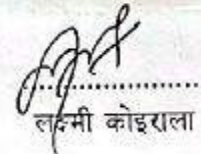 लक्ष्मी कोइराला